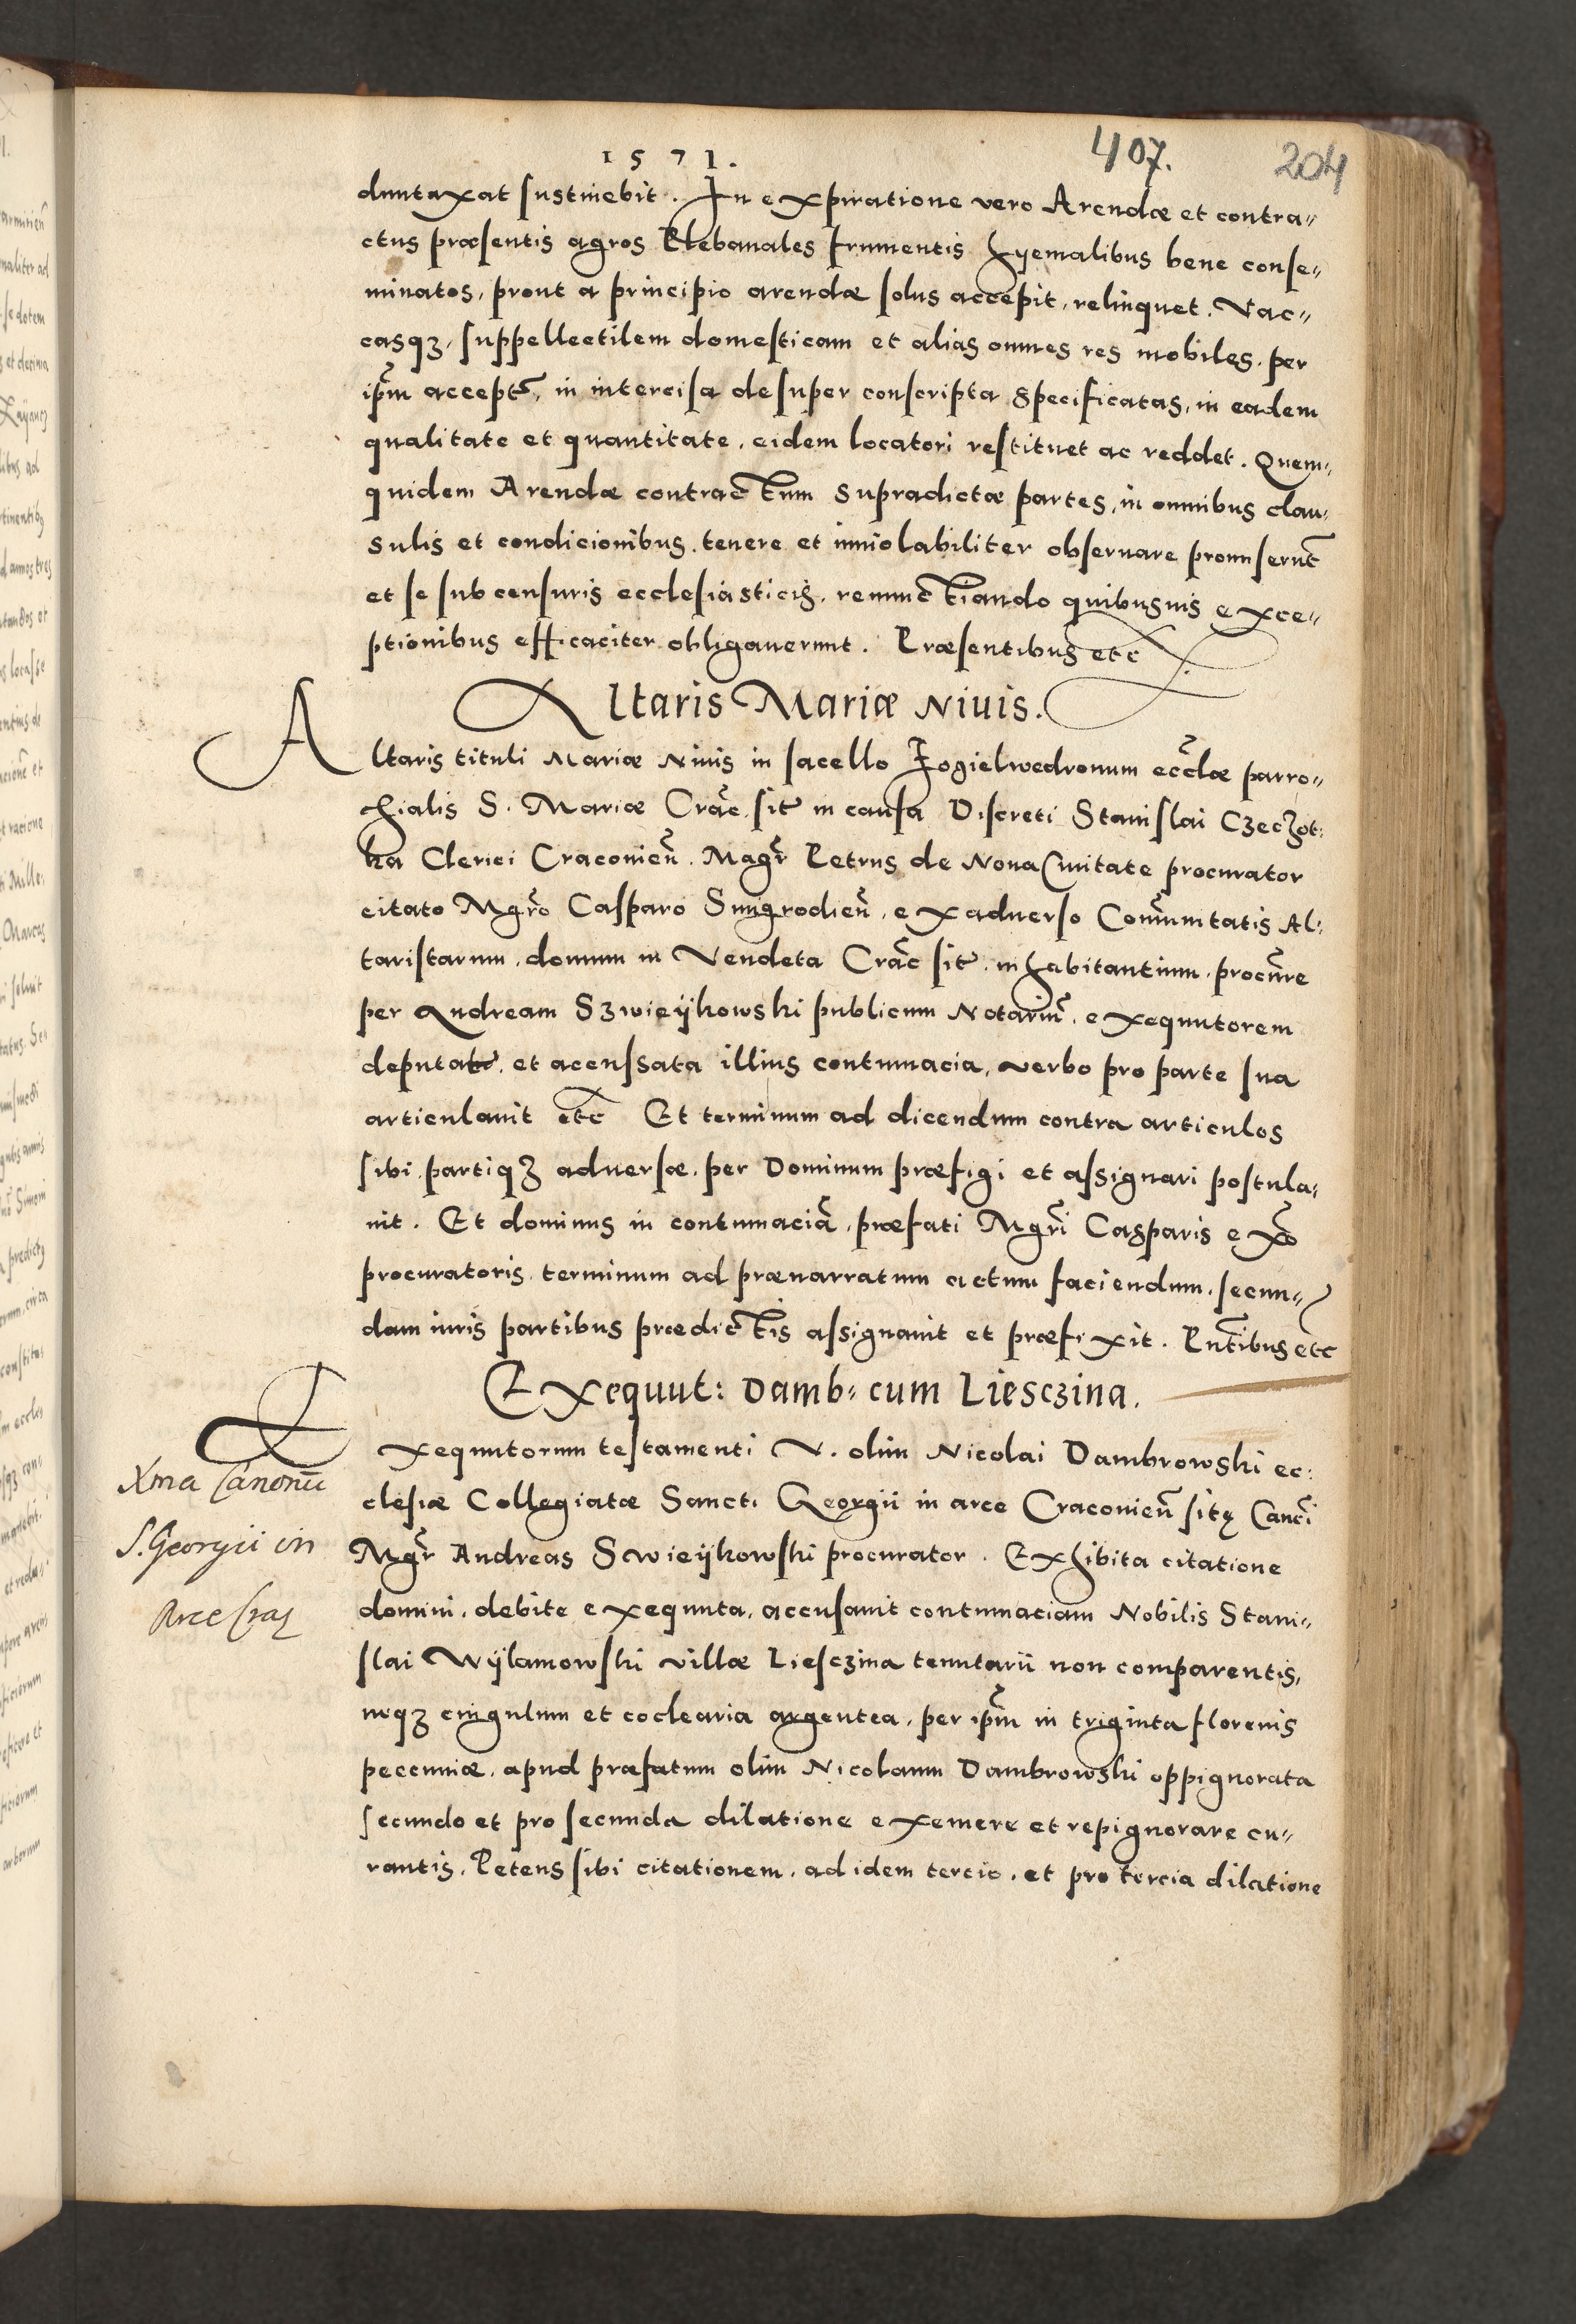 1571.
407.
204
duntaxat sustinebit. In expiratione vero Arendæ et contra„
ctus præsentis agros Plebanales frumentis hyemalibus bene conse„
minatos, prout a principio arendæ solus accepit, relinquet. Vac„
casqȝ, suppellectilem domesticam et alias omnes res mobiles, per
ipm̃ accept̃, in intercisa desuper conscripta specificatas, in eadem
qualitate et quantitate, eidem locatori restituet ac reddet. Quem„
quidem Arendæ contractum supradictæ partes, in omnibus clau„
sulis et condicionibus, tenere et inuiolabiliter obseruare promiserũt
et se sub censuris ecclesiasticis, renunctiando quibusuis exce„
ptionibus efficaciter obligauerunt. Præsentibus etc
Altaris Mariæ Niuis.
Altaris tituli Mariæ Niuis in sacello Fogielwedronum eccl̃æ parro„
chialis S. Mariæ Crac̃ sit̃ in causa Discreti Stanislai Czeczot:
ka Clerici Craconieñ. Magr̃ Petrus de Noua Ciuitate procurator
citato Mgr̃o Casparo Smigrodieñ, ex aduerso Com̃unitatis Al:
taristarum, domum in Vendeta Crac̃ sit̃ inhabitantium, procur̃e
per Andream Szwieÿkowski publicum Notariũ, exequutorem
deputat̃, et accussata illius contumacia, verbo pro parte sua
articulauit etc Et terminum ad dicendum contra articulos
sibi, partiqȝ aduersæ, per Dominum præfigi et assignari postula„
uit. Et dominus in contumaciã, præfati Mgr̃i Casparis ex̃o
procuratoris, terminum ad prænarratum actum faciendum, secun„
dam iuris partibus prædictis assignauit et præfixit. Pñtibus etc
Exequut: Damb: cum Liesczina.
Exequutorum testamenti V. olim Nicolai Dambrowski ec:
clesiæ Collegiatæ Sancti Georgii in arce Craconieñ sitę Canci̇̃
Mgr̃ Andreas Swieÿkowski procurator. Exhibita citatione
domini, debite exequuta, accusauit contumaciam Nobilis Stani„
slai Wÿlamowski villæ Liesczina tenutarii non comparentis,
neqȝ cingulum et coclearia argentea, per ipm̃ in triginta florenis
pecuniæ, apud præfatum olim Nicolaum Dambrowski oppignorata
secundo et pro secunda dilatione exemere et repignorare cu„
rantis. Petens sibi citationem, ad idem tercio, et pro tercia dilatione
Canonii
S. Georgii in
Arce Crac